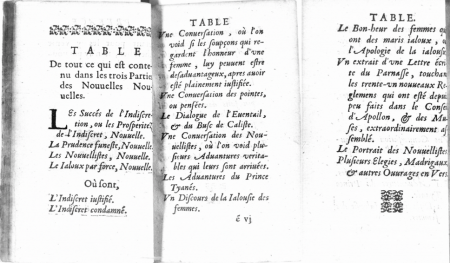 TABLE
De tout ce qui est conte-
nu dans les trois Partie
des Nouuelles Nou-
uelles.
LEs Succés de l'Indiscre-
tion, ou les Prosperitez
de l'Indiscret, Nouuelle.
La Prudence funeste, Nouuelle.
Les Nouuellistes, Nouuelle.
Le Ialoux par force, Nouuelle.
Où sont,
L'Indiscret iustifié.
L'Indiscret condamné.
TABLE
Vne Conuersation, où l'on
void si les soupçons qui re-
gardent l'honneur d'vne
femme, luy peuuent estre
desaduantageux, apres auoir
esté plainement iustifiée.
Vne Conuersation des pointes,
ou pensées.
Le Dialogue de l'Euentail,
& du Busc de Caliste.
Vne Conuersation des Nou-
uellistes, où l'on void plu-
sieurs Aduantures verita-
bles qui leurs sont arriuées.
Les Aduantures du Prince
Tyanés.
Vn Discours de la Ialousie des
femmes.
é vj
TABLE.
Le Bon-heur des femmes qu
ont des maris ialoux, &
l'Apologie de la ialousie
Vn extrait d'vne Lettre écri
te du Parnasse, touchan
les trente-vn nouueaux Re
glemens qui ont esté depu
peu faits dans le Conse
d'Apollon, & des Mu
ses, extraordinairement as
semblé.
Le Portrait des Nouuellistes
Plusieurs Elegies, Madrigaux
& autres Ouurages en Vers